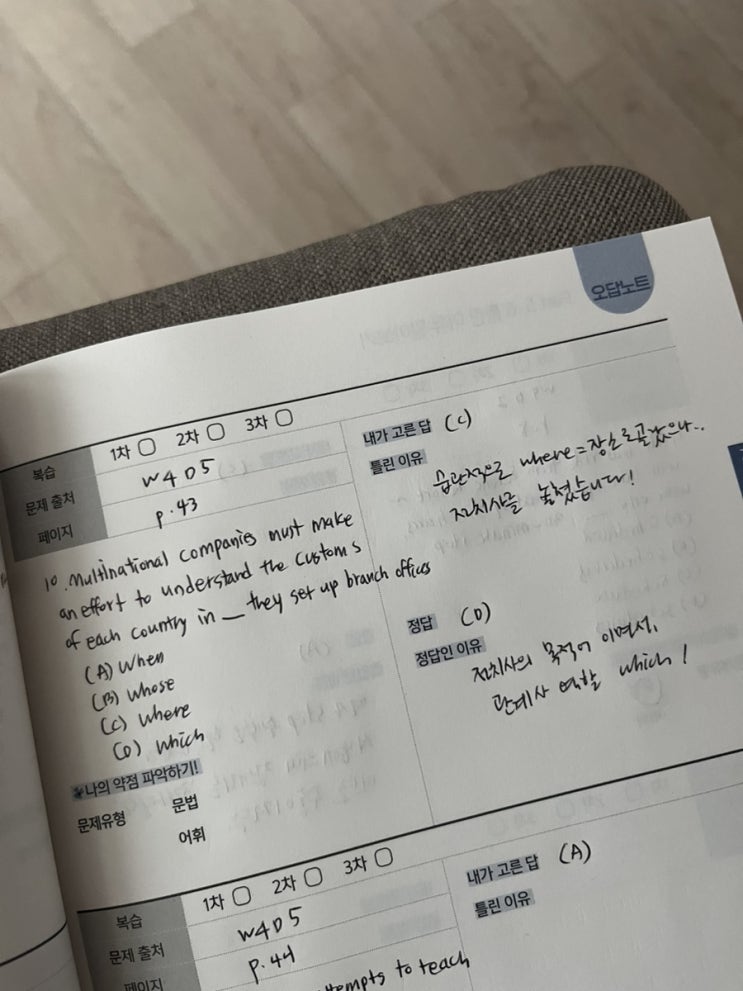 오답노트
복습 1차 2차 3차
문제 출처 W4D5
페이지 p.43
10. Multinational companies must make
an effort to understand the customs
of each country in __ they set up branch offices
(A) When
(B) Whose
(C) Where
(D) Which
나의 약점 파악하기!
문제유형 문법
어휘
내가 고른 답 (C)
틀린 이유
습관적으로 where=장소로 골랐으나..
전치사를 놓쳤습니다!
정답 (D)
정답인 이유
전치사의 목적어 이며서,
관계사 역할 which!
복습 1차 2차 3차
문제 출처 W4D5
페이지 p.44
tempts to teach
내가 고른 답 (A)
틀린 이유